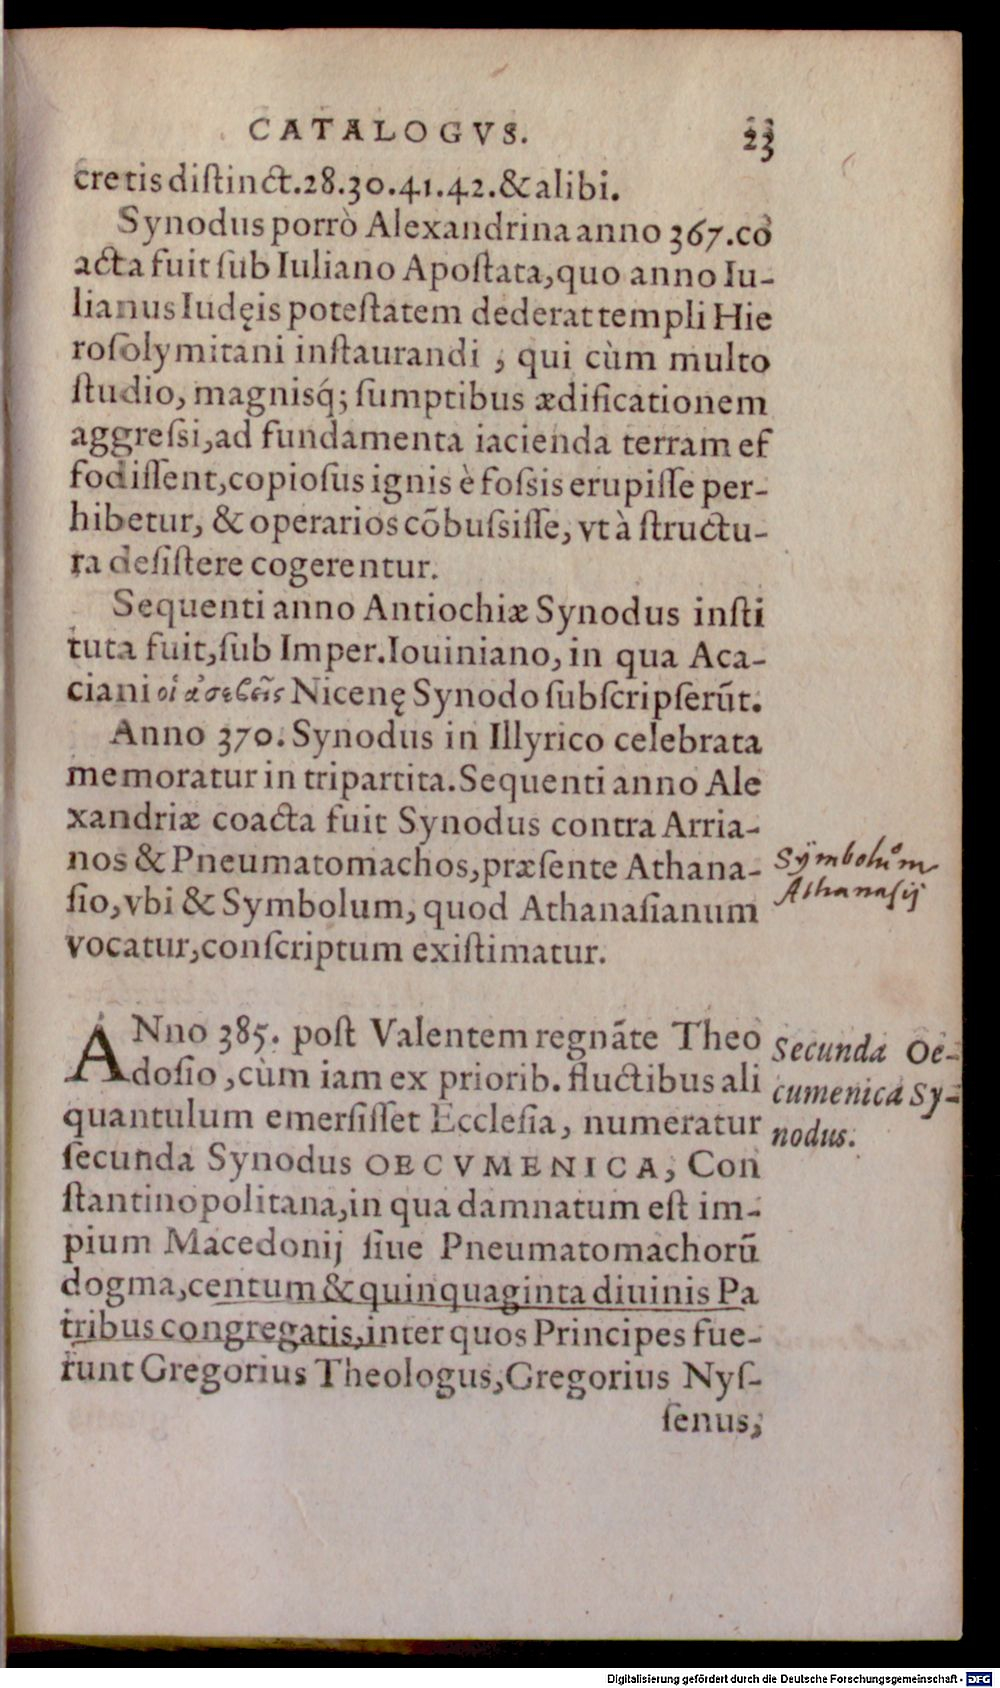 CATALOGVS. 23
cretis distinct.28.30.41.42.&alibi.
Synodus porrò Alexandrina anno 367.co
acta fuit ſub Iuliano Apoſtata,quo anno Iu-
lianus Iudęis poteſtatem dederat templi Hie
roſolymitani inſtaurandi , qui cùm multo
ſtudio, magnisq́; ſumptibus ædificationem
aggreſsi,ad fundamenta iacienda terram ef
fodiſſent,copioſus ignis è foſsis erupiſſe per-
hibetur, & operarios cōbuſsiſſe, vt à ſtructu-
ra deſiſtere cogerentur.
Sequenti anno Antiochiæ Synodus inſti
tuta fuit,ſub Imper.Iouiniano, in qua Aca-
ciani οἱ ἀσεβεῖς Nicenę Synodo ſubſcripſerūt.
Anno 370. Synodus in Illyrico celebrata
memoratur in tripartita. Sequenti anno Ale
xandriæ coacta fuit Synodus contra Arria-
nos & Pneumatomachos,præſente Athana-
ſio,vbi & Symbolum, quod Athanaſianum
vocatur,conſcriptum exiſtimatur.
Symbolum
Athanasij
ANno 385. poſt Valentem regnāte Theo
doſio ,cùm iam ex priorib. fluctibus ali
quantulum emerſiſſet Eccleſia, numeratur
ſecunda Synodus OECVMENICA, Con
ſtantinopolitana,in qua damnatum eſt im-
pium Macedonij ſiue Pneumatomachorū
dogma,centum & quinquaginta diuinis Pa
tribus congregatis,inter quos Principes fue-
runt Gregorius Theologus,Gregorius Nyſ-
ſenus,
Secunda Oe-
cumenica Sy-
nodus.
Digitalisierung gefördert durch die Deutsche Forschungsgemeinschaft - DFG